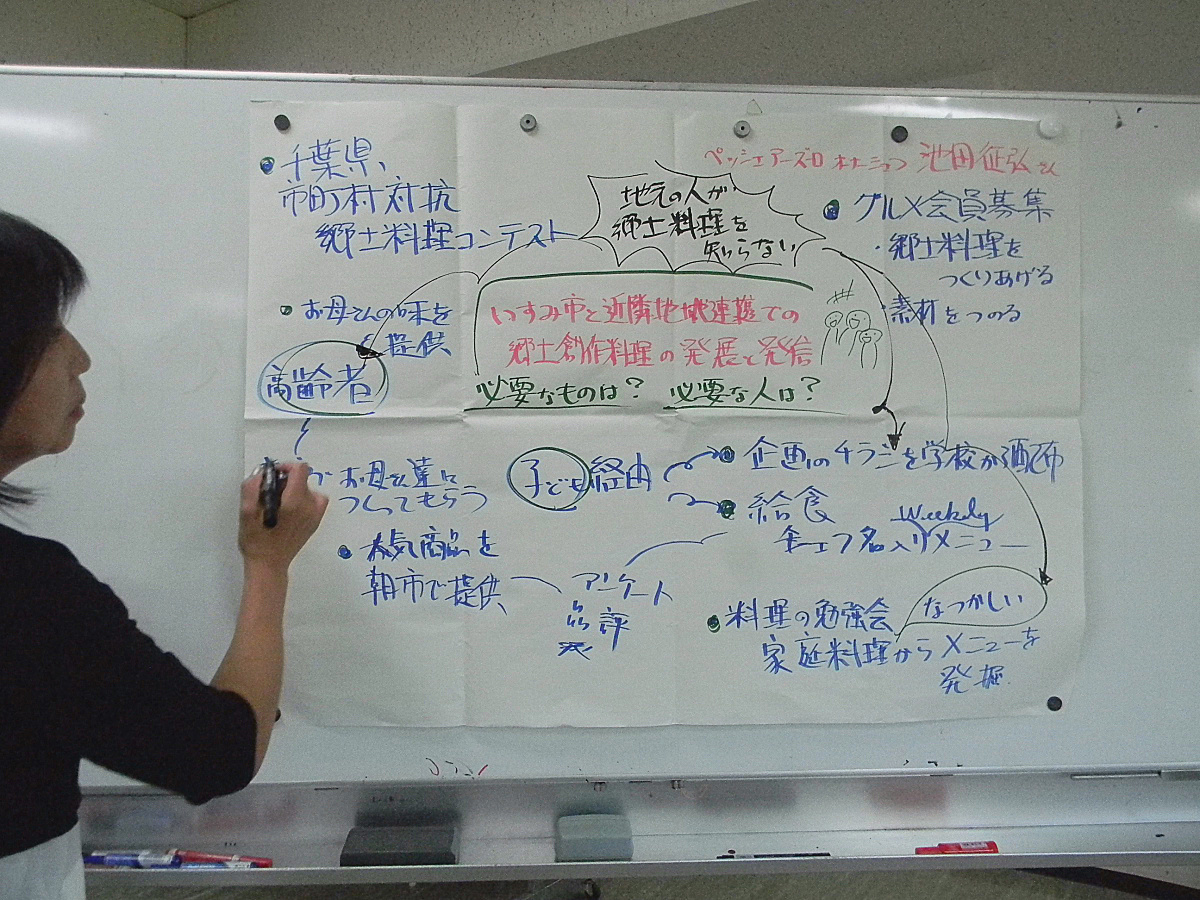 千葉県、
市町村対抗
郷土料理コンテスト
お母さんの味を
提供
高齢者
地元の人が
郷土料理を
知らない
池田征弘さん
グルメ会員募集
・郷土料理を
つくりあげる
・素材をつのる
いすみ市と近隣地域連携での
郷土創作料理の発展と発信
必要なものは? 必要な人は?
お母さん達に
つくってもらう
人気商品を
朝市で提供
子ども経由
企画のチラシを学校が配布
給食
Weekly
シェフ名入りメニュー
アンケート
評
料理の勉強会
家庭料理から
なつかしい
メニューを
発掘